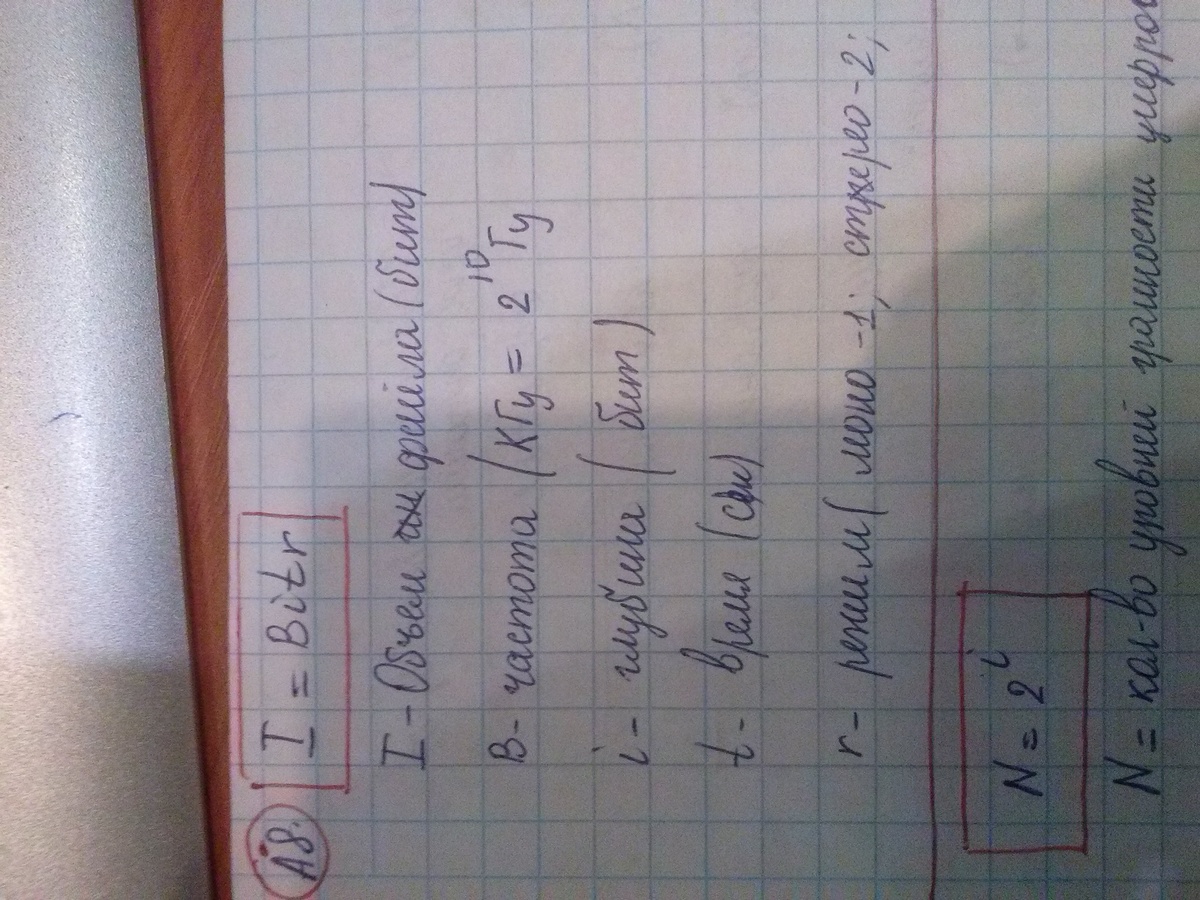 А8. I = Bitr
I - Объем файла (бит)
B - частота (КГц = 2¹⁰ Гц
i - глубина ( бит )
t - время (сек)
r - режим ( моно -1; стерео -2;
N = 2ⁱ
N = кол-во уровней громкости цифров